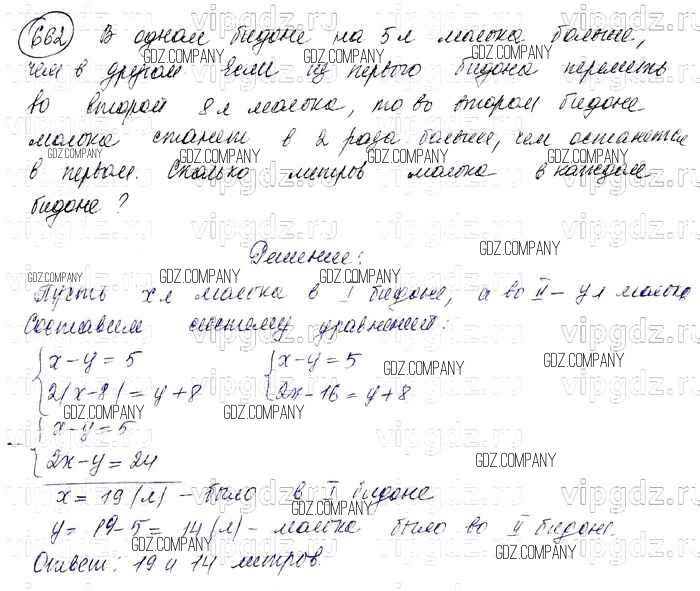 662 В одном бидоне на 5 л молока больше,
чем в другом Если из первого бидона перелить
во второй 8 л молока, то во втором бидоне
молока станет в 2 раза больше, чем останется
в первом. Сколько метров молока в каждом
бидоне?
Решение:
Пусть x л молока в I бидоне, а во II – y л молока
Составим систему уравнений:
x – y = 5 x – y = 5
2(x – 8) = y + 8 2x – 16 = y + 8
x – y = 5
2x – y = 24
x = 19 (л) – было в I бидоне
y = 19 – 5 = 14 (л) – молока было во II бидоне.
Ответ: 19 и 14 метров.
GDZ.COMPANY
vipgdz.ru